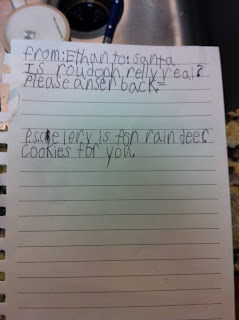 from: Ethan to: santa
Is roudoph relly real?
Please anser back.
P.s celery is for rain deer.
cookies for you.